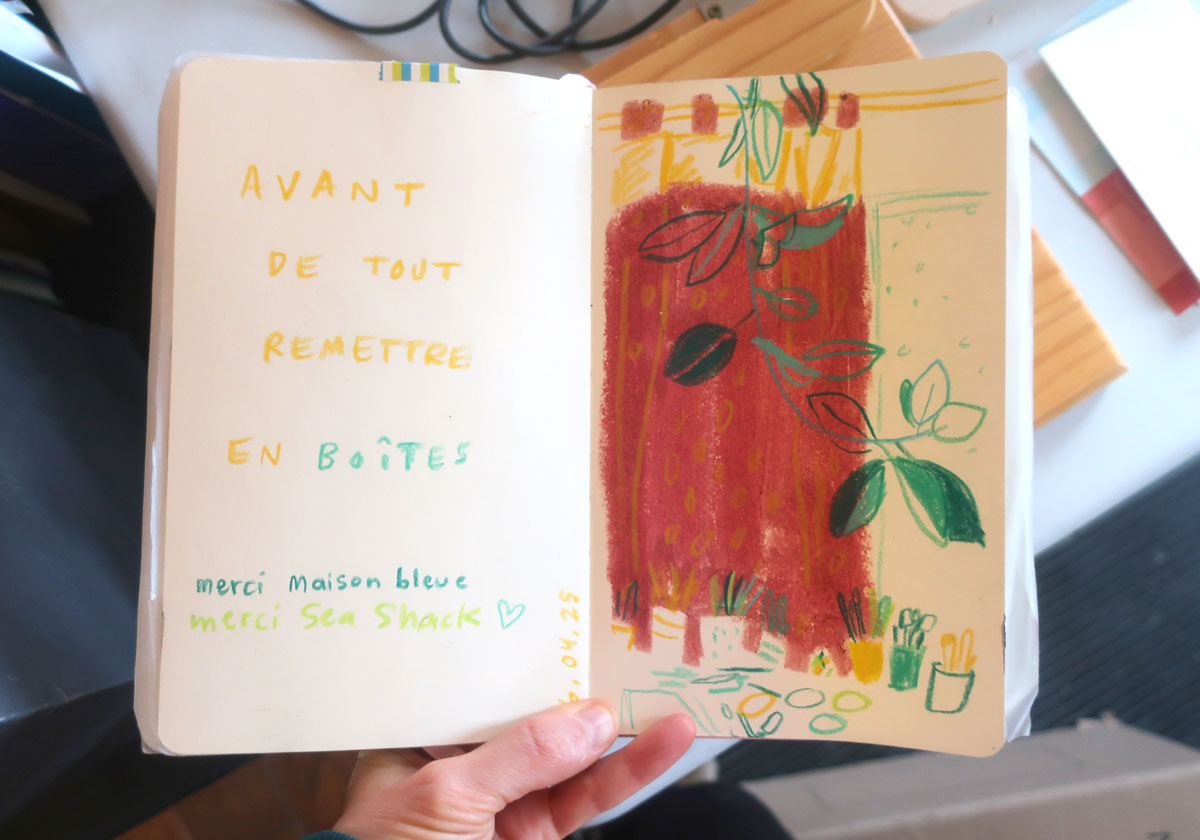 AVANT
DE TOUT
REMETTRE
EN BOÎTES
merci maison bleue
merci Sea Shack ♡
.04.25